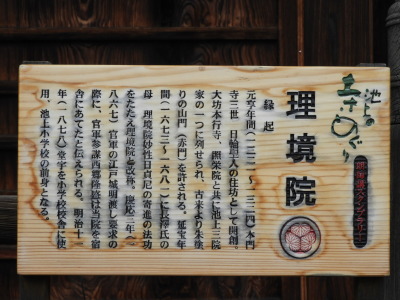 池上
まちめぐり
理境院
縁起
元亨年間(一三二一〜一三二四)本門
寺三世 日輪上人の住坊として開創。
大坊本行寺、照栄院と共に池上三院
家の一つに列せられ、古来より朱塗
りの山門(赤門)を許される。延宝年
間(一六七三〜一六八一)に長澤氏の
母 理境院妙性日貞尼の寄進の法功
をたたえ理境院と改称。慶応三年(一
八六七) 官軍の江戸城明渡し要求の
際に、官軍参謀西郷隆盛は当院を宿
舎にあてたと伝えられる。明治十一
年(一八七八)堂宇を小学校校舎に使
用、池上小学校の前身となる。